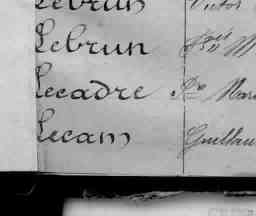 Lebrun Victor
Lebrun
Lecadre
Lecam Guillau